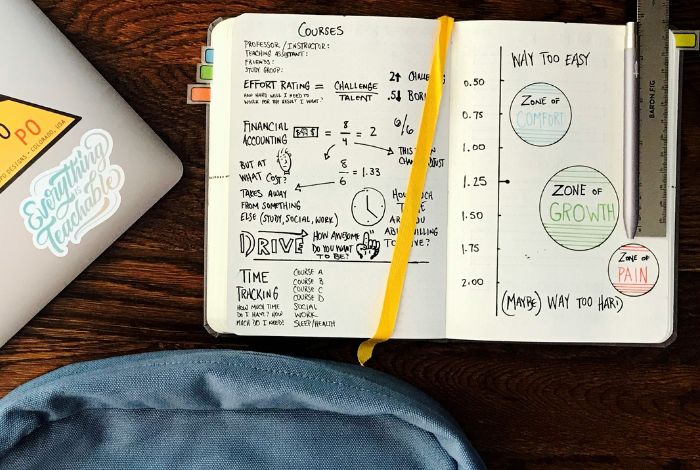 COURSES
PROFESSOR / INSTRUCTOR:
TEACHING ASSISTANT:
FRIENDS:
STUDY GROUP:
EFFORT RATING = CHALLENGE
TALENT
HOW HARD WILL I NEED TO
WORK FOR THE RESULT I WANT?
2↑
.5↓
FINANCIAL
ACCOUNTING $$$ = 8/4 = 2
6/6
THIS
BUT AT
WHAT COST?
8/6 = 1.33
TAKES AWAY
FROM SOMETHING
ELSE (STUDY, SOCIAL, WORK)
HOW MUCH
ARE YOU
WILLING
DRIVE
HOW AWESOME
DO YOU WANT
TO BE?
TIME
TRACKING
HOW MUCH TIME
DO I HAVE? HOW
MUCH DO I NEED?
COURSE A
COURSE B
COURSE C
COURSE D
SOCIAL
WORK
SLEEP/HEALTH
WAY TOO EASY
0.50
0.75
1.00
1.25
1.50
1.75
2.00
ZONE OF
COMFORT
ZONE OF
GROWTH
ZONE OF
PAIN
(MAYBE) WAY TOO HARD
BARON FIG
PO
DESIGNS • COLORADO, USA
Everything
is
Teachable